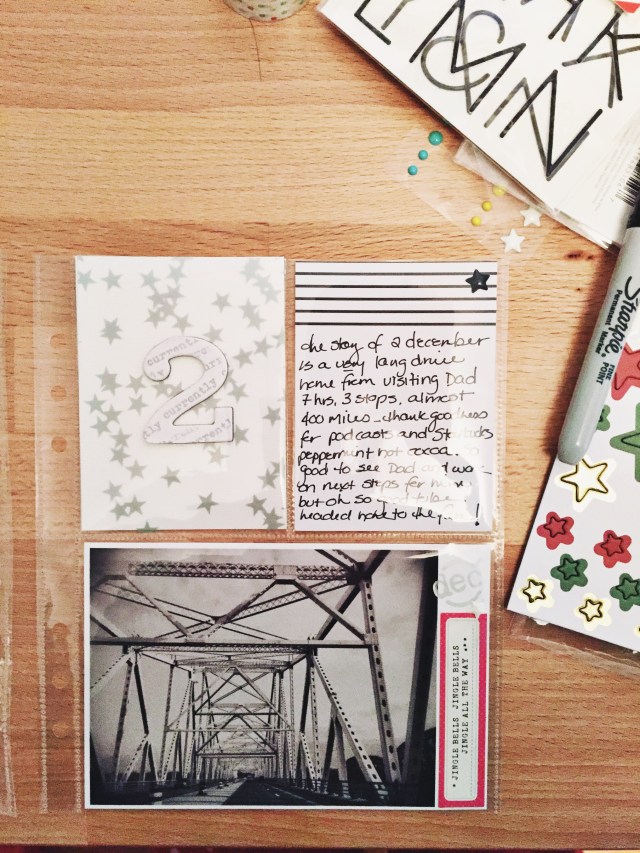 2
currently
the story of 2 december
is a very long drive
home from visiting Dad
7 hrs, 3 stops, almost
400 miles - thank goodness
for podcasts and Starbucks
peppermint hot cocoa. So
good to see Dad and work
on next steps for
but oh so
headed home to the !
dec
• JINGLE BELLS JINGLE BELLS
JINGLE ALL THE WAY •••
Sharpie
Permanent Marker
FINE POINT